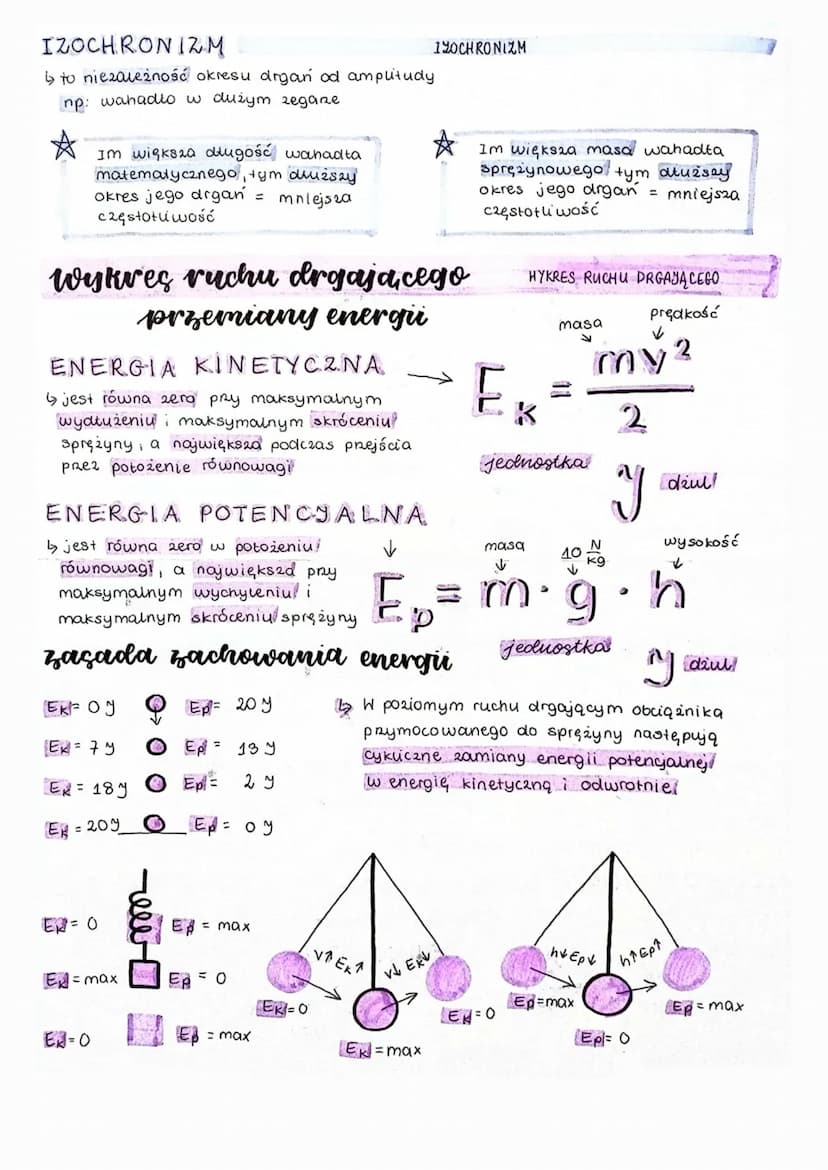 IZOCHRONIZM
IZOCHRONIZM
↳ to niezależność okresu drgań od amplitudy
np: wahadło w dużym zegarze
☆ Im większa długość wahadła
matematycznego, tym dłuższy
okres jego drgań = mniejsza
częstotliwość
☆ Im większa masa wahadła
sprężynowego tym dłuższy
okres jego drgań = mniejsza
częstotliwość
wykres ruchu drgającego
WYKRES RUCHU DRGAJĄCEGO
przemiany energii
ENERGIA KINETYCZNA →
↳ jest równa zero przy maksymalnym
wydłużeniu i maksymalnym skróceniu
sprężyny, a największa podczas przejścia
przez położenie równowagi
masa
prędkość
E_k = mv²/2
jednostka
J dżul
ENERGIA POTENCJALNA
↳ jest równa zero w położeniu
równowagi, a największa przy
maksymalnym wychyleniu i
maksymalnym skróceniu sprężyny
masa
10 N/kg
wysokość
E_p = m · g · h
jednostka
J dżul
zasada zachowania energii
Ek = 0 J Ep = 20 J
Ek = 7 J Ep = 13 J
Ek = 18 J Ep = 2 J
Ek = 20 J Ep = 0 J
↳ W poziomym ruchu drgającym obciążnika
przymocowanego do sprężyny następują
cykliczne zamiany energii potencjalnej
w energię kinetyczną i odwrotnie
Ek = 0 Ep = max
Ek = max Ep = 0
Ek = 0 Ep = max
V↑ Ek↑
V↓ Ek↓
Ek = 0
Ek = 0
Ek = max
h↓ Ep↓
h↑ Ep↑
Ep = max
Ep = max
Ep = 0